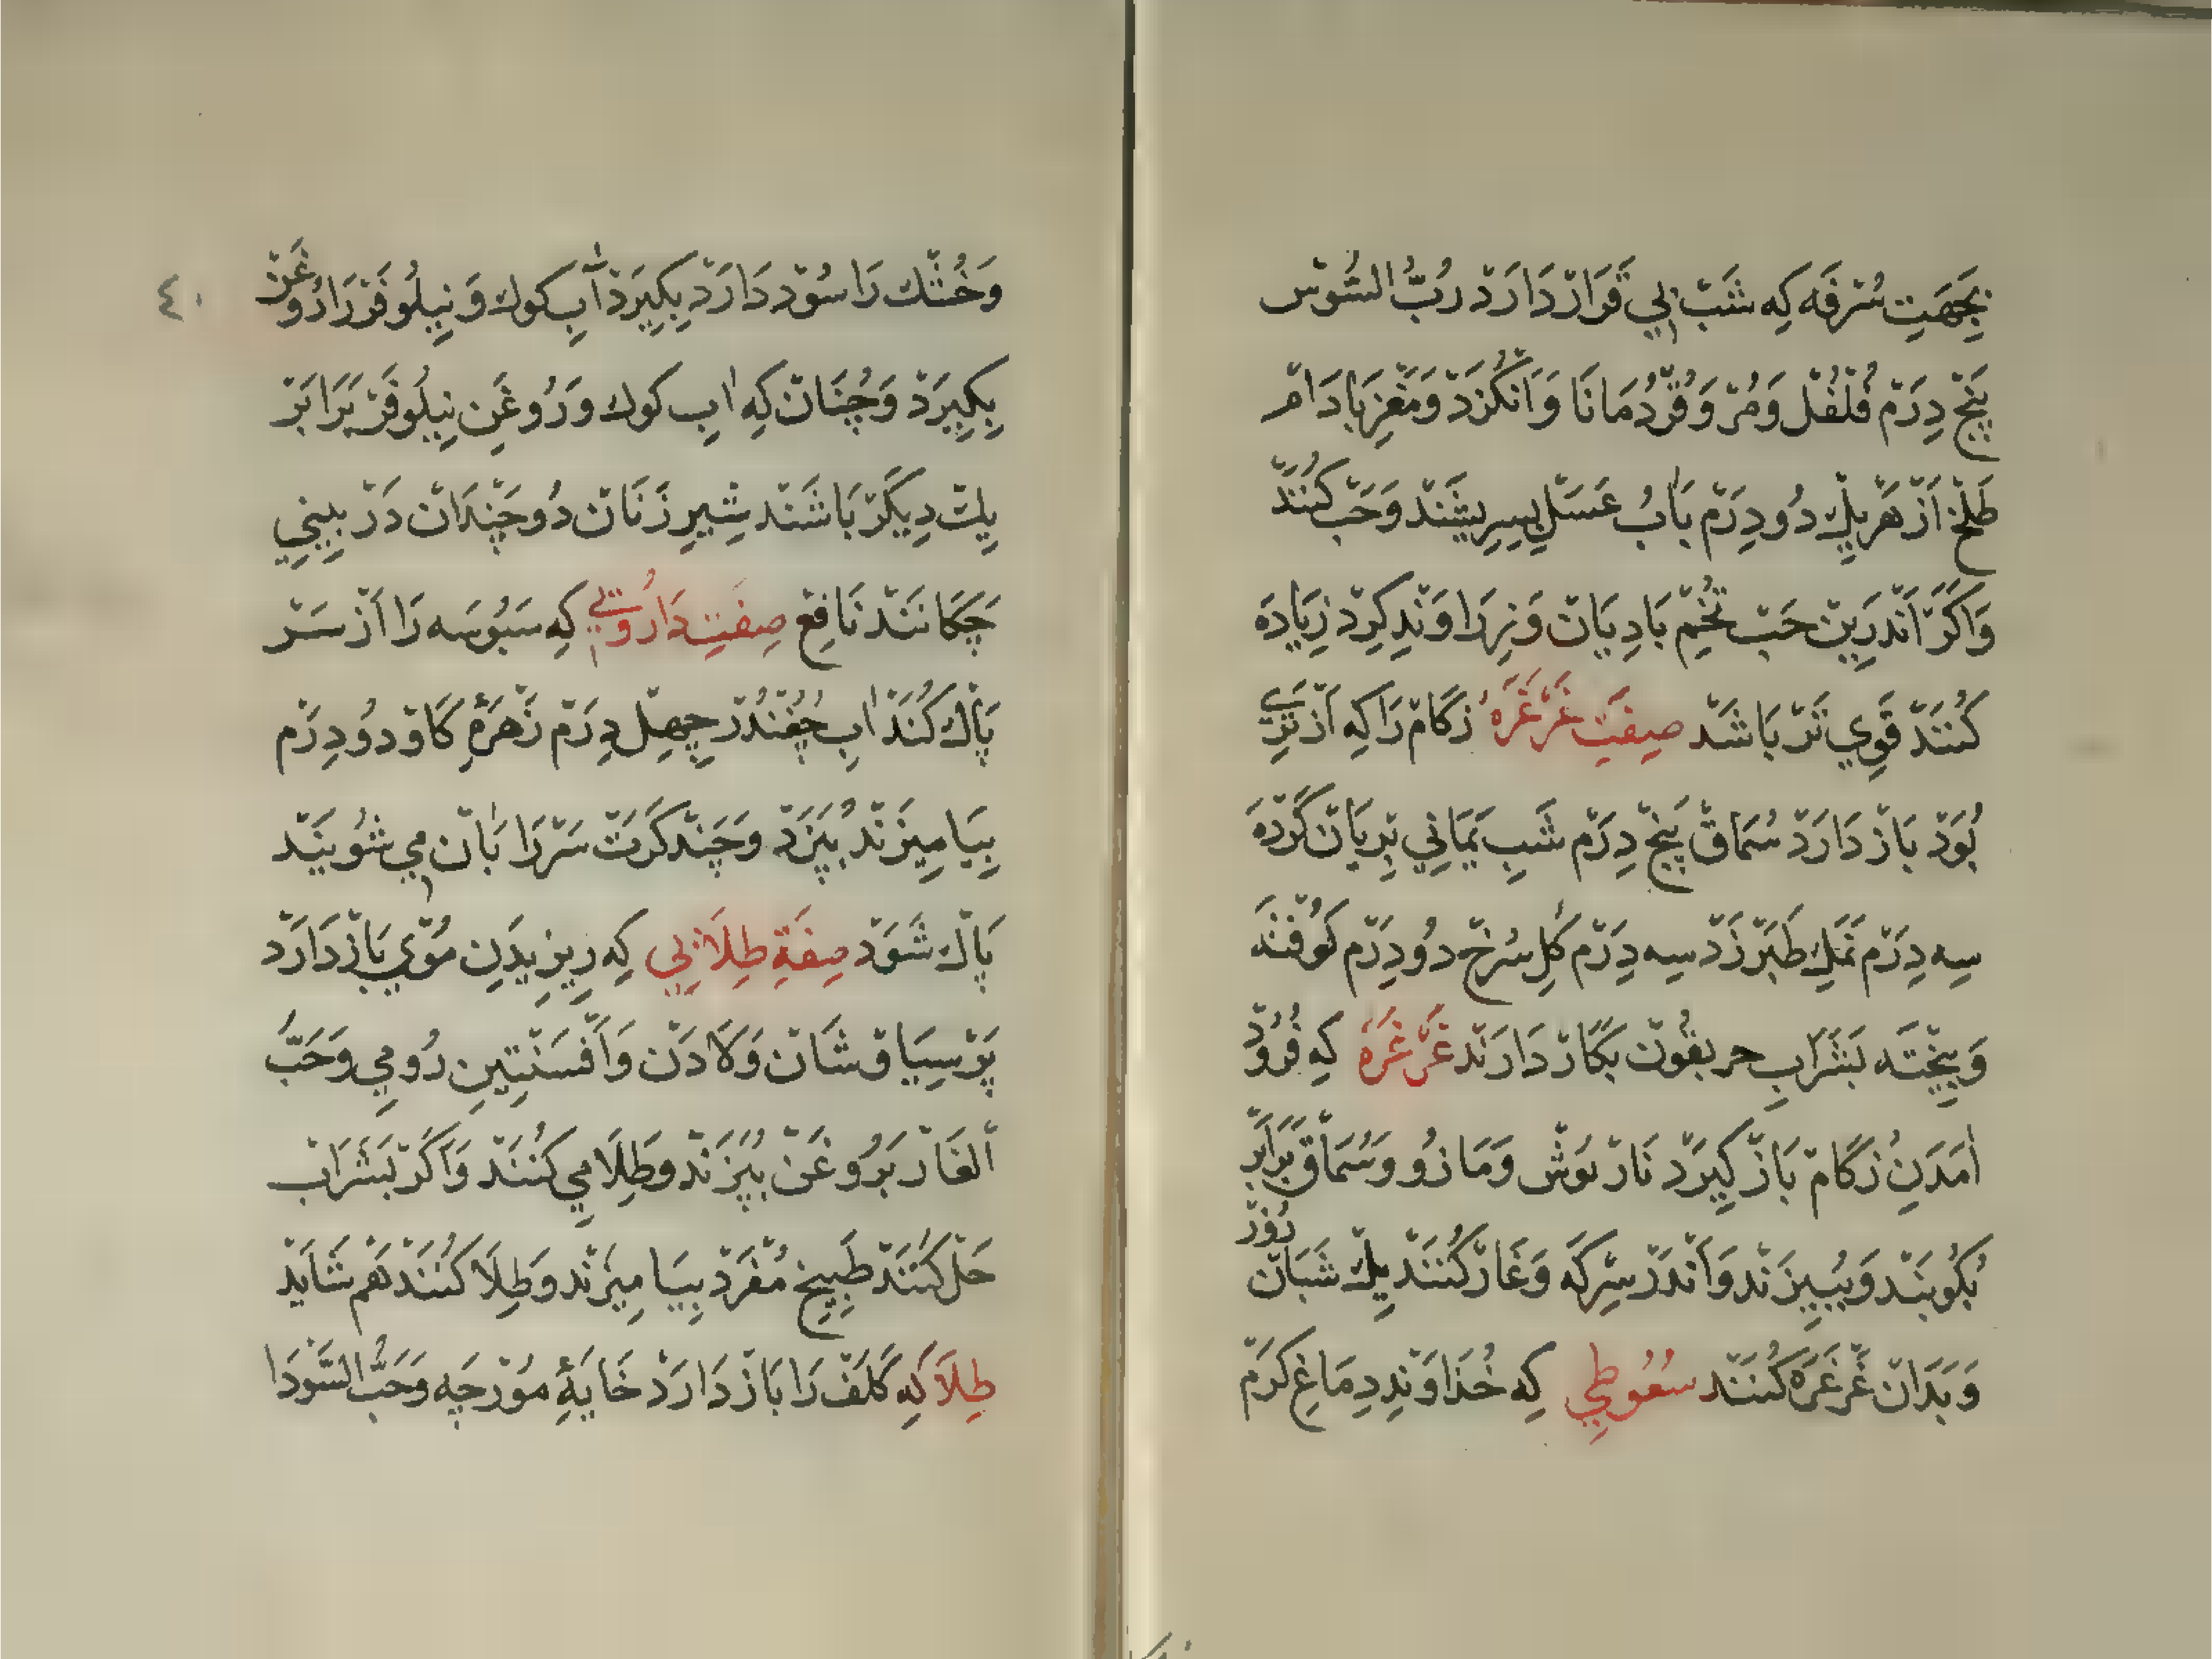 بِجِهَتِ سُرْفَه كِه شَبْ بِي قَرَارْ دَارَدْ رُبُّ السُّوْس
پَنْج دِرَمْ فُلْفُل وَمُرْ وَقُرْدُمَانَا وَاَنْكُزَدْ وَمَغْزِ بَادَامْ
طَلْخ اَزْ هَرْيِكْ دُو دِرَمْ بَابُ عَسَلْ بِسِرِيشَنْد وَحَبْ كُنَنْد
وَاَكَرْ اَنْدَرِينْ حَبْ تُخْمِ بَادِيَانْ وَنِرَاوَنْدِ كِرْد زِيَادَه
كُنَنْدْ قَوِي تَرْ بَاشَدْ صِفَتِ غَرْغَرَهْ زُكَامْ رَا كِه اَزْ تَرِي
بُوَدْ بَازْ دَارَدْ سُمَاقْ پَنْج دِرَمْ شَبِ يَمَانِي بِرِيَانْ كَرْدَه
سِه دِرَمْ نَمَكِ طَبَرْزَدْ سِه دِرَمْ كُلِ سُرْخ دُو دِرَمْ كُوفْتَه
وَبِيخْتَه بَشَرَابِ خربقُوتْ بَكَارْ دَارَنْد غَرْغَرَهْ كِه فُرُوْدْ
اٰمَدَنِ زُكَامْ بَازْ كِيرَدْ نَارْ بُوشْ وَمَازُو وَسُمَاقْ بَرَابَرْ
بُكُوبَنْد وَبِبِيزَنْد وَاَنْدَرْ سِرْكَه وَغَارْ كُنَنْد يِكْ شَبَانْ رُوْزْ
وَبَدَانْ غَرْغَرَه كُنَنْد سُعُوطِي كِه خُدَاوَنْدِ دِمَاغِ كَرَمْ
وَخُشْك رَا سُوْد دَارَدْ بِكِيرَدْ آبِ كوك وَنِيلُوفَرْ رَا رُوغَنْ
بِكِيرَدْ وَچُنَانْ كِه اٰبِ كوك وَرُوغَنِ نِيلُوفَرْ بَرَابَرْ
يِكْ دِيكَرْ بَاشَنْد شِيرِ زَنَانْ دُو چَنْدَانْ دَرْ بِينِي
چَكَانَنَنْدْ نَافِعْ صِفَتِ دَارُويي كِه سَبُوسَه رَا اَزْ سَرْ
پَاكْ كُنَدْ اٰبِ چُغُنْدُرْ چِهِلْ دِرَمْ زَهْرَهِٔ كَاوْ دُو دِرَمْ
بِيَامِيزَنْد بُپَزَدْ وَچَنْد كَرَتْ سَرْ رَا بَانْ مِي شُويَنْد
پَاكْ شَوَدْ صِفَةِ طِلَائِي كِه رِيزِيدَنِ مُوْيْ بَازْ دَارَدْ
پَرْسِيَاوْشَانْ وَلَادَنْ وَاَفْسَنْتِينِ رُومِي وَحَبُّ
اَلْغَارْ بَرُوغَنْ بُپَزَنْد وَطِلَا مِي كُنَنْد وَاَكَرْ بَشَرَابْ
حَلْ كُنَنْد طَبِيخِ مُفْرَدْ بِيَامِيزَنْد وَطِلَا كُنَنْد هَمْ شَايَدْ
طِلَا كِه كَلَفْ رَا بَازْ دَارَدْ خَايَهِٔ مُوْرْچَه وَحَبُّ السَّوْدَا
٤٠